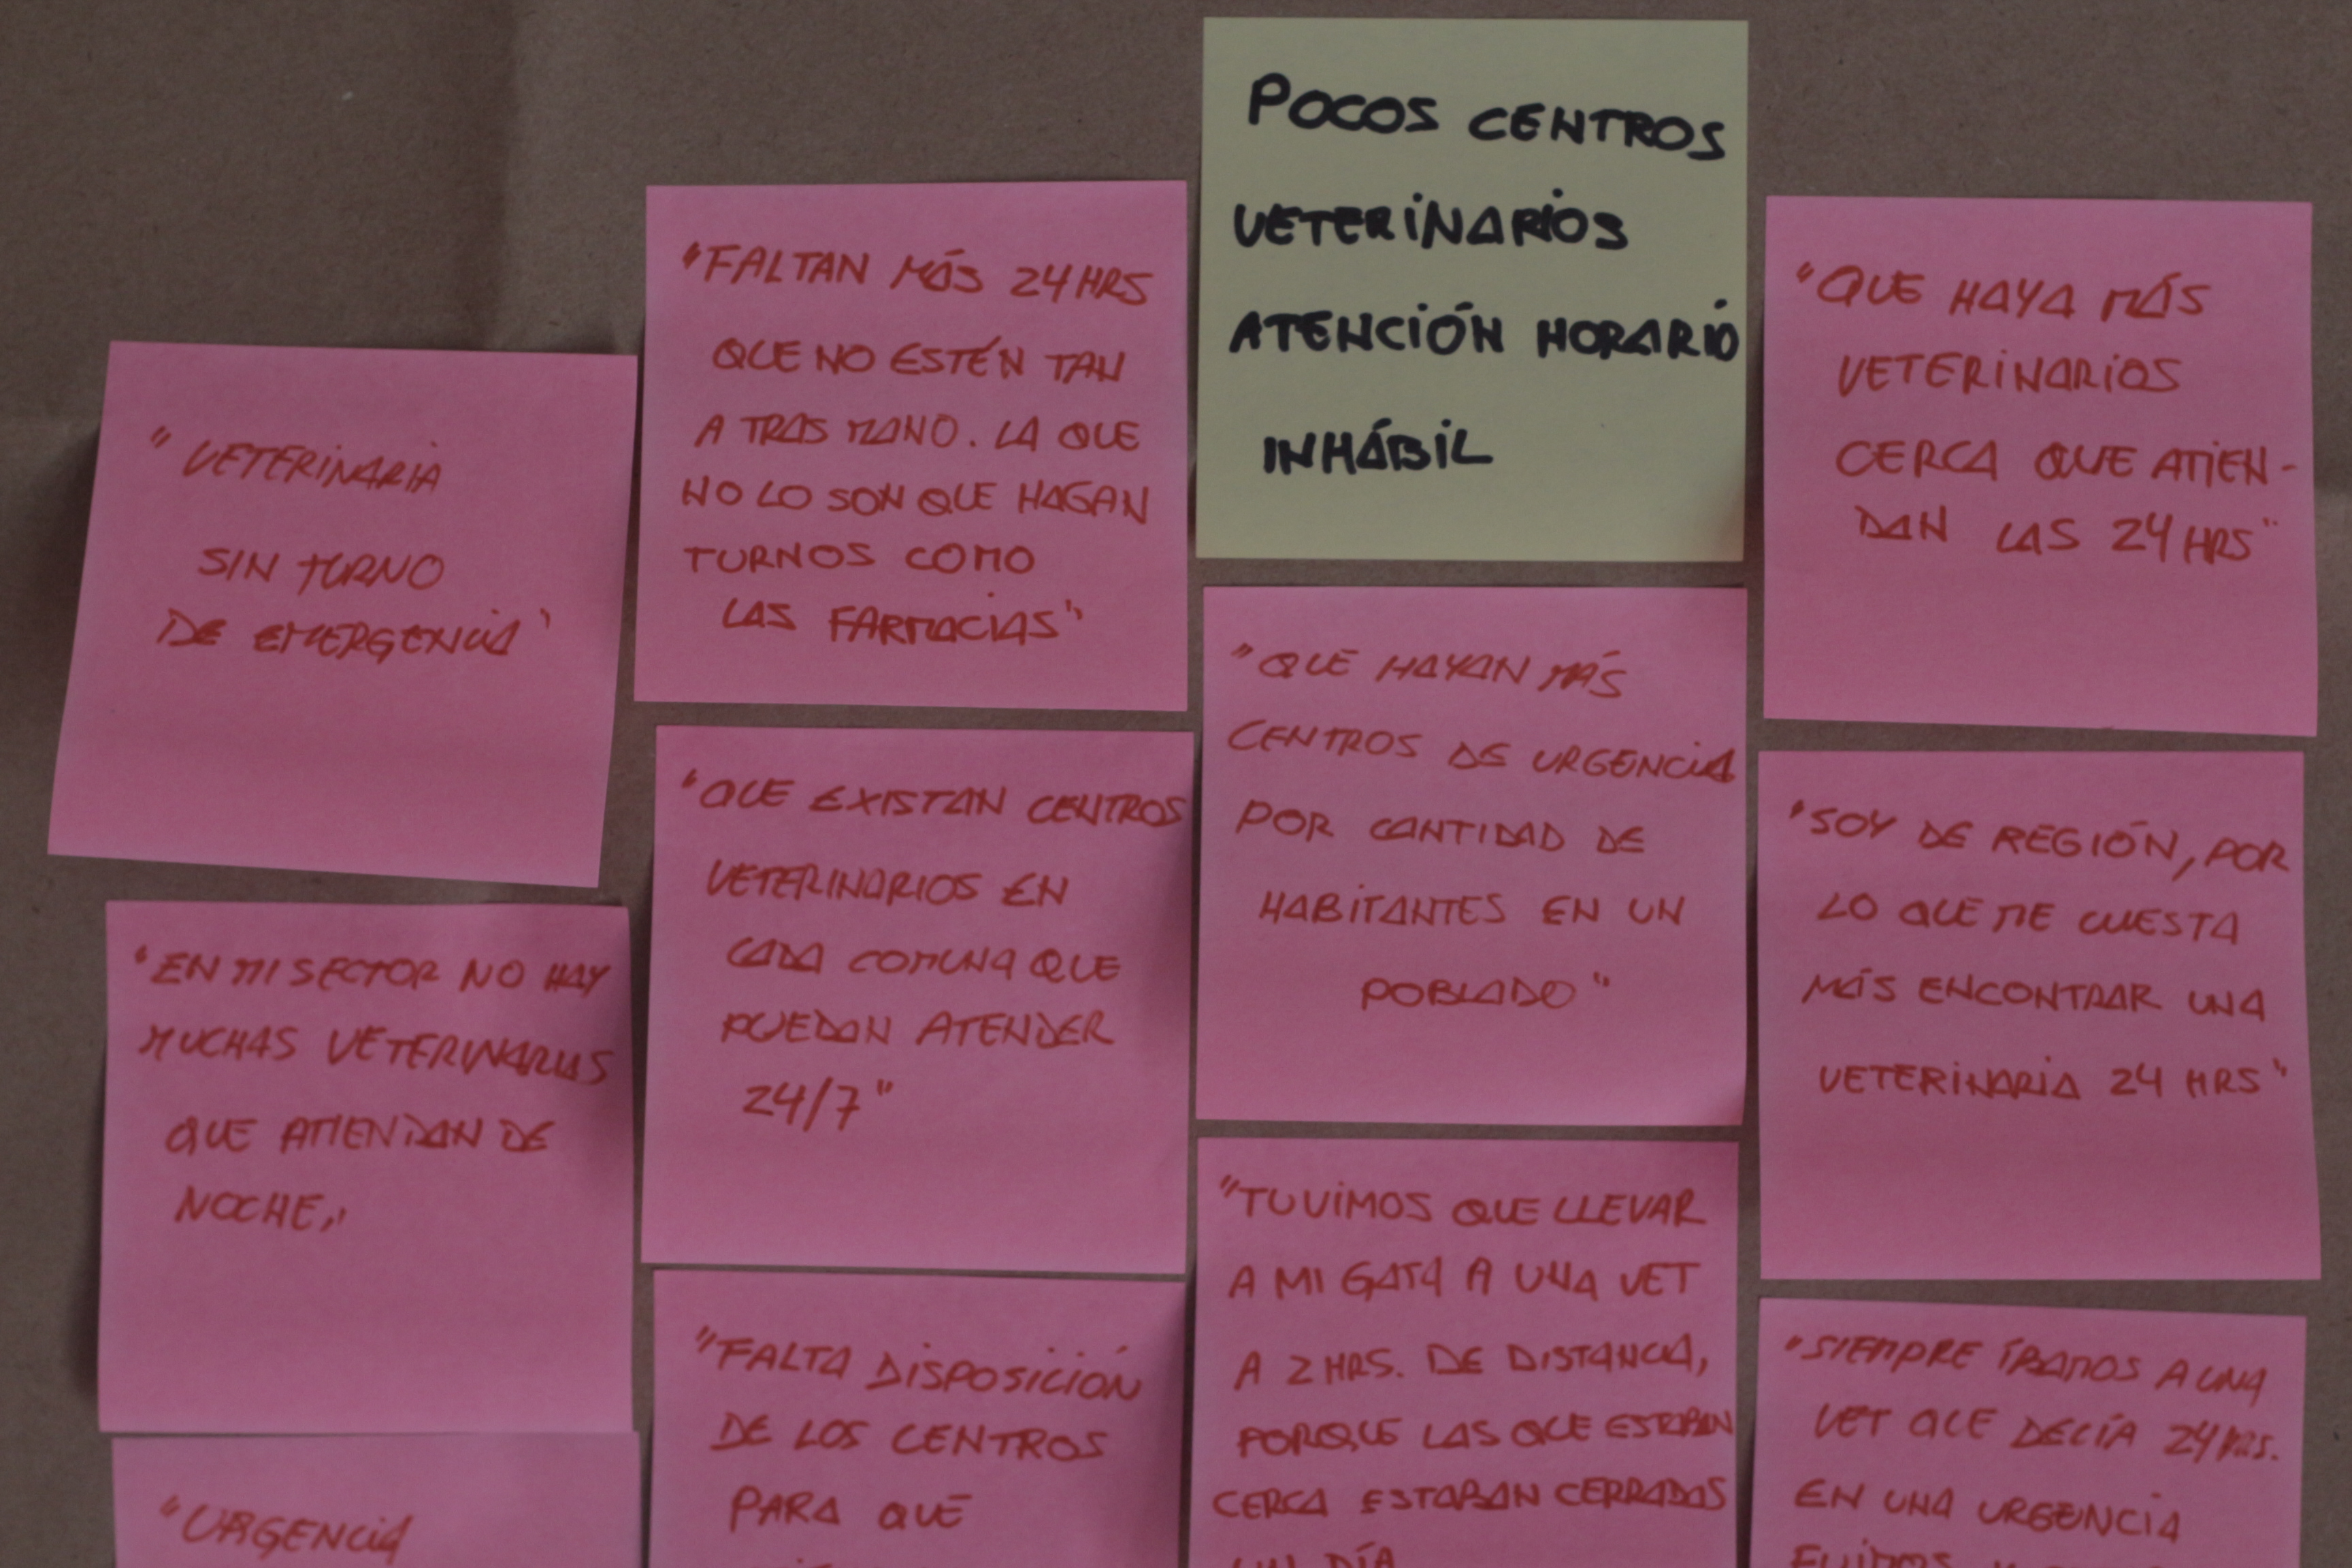 POCOS CENTROS
VETERINARIOS
ATENCIÓN HORARIO
INHÁBIL
"VETERINARIA
SIN TURNO
DE EMERGENCIA"
"EN MI SECTOR NO HAY
MUCHAS VETERINARIAS
QUE ATIENDAN DE
NOCHE,"
"URGENCIA
"FALTAN MÁS 24 HRS
QUE NO ESTÉN TAN
A TRAS MANO. LA QUE
NO LO SON QUE HAGAN
TURNOS COMO
LAS FARMACIAS"
"QUE EXISTAN CENTROS
VETERINARIOS EN
CADA COMUNA QUE
PUEDAN ATENDER
24/7"
"FALTA DISPOSICIÓN
DE LOS CENTROS
PARA QUE
"QUE HAYAN MÁS
CENTROS DE URGENCIA
POR CANTIDAD DE
HABITANTES EN UN
POBLADO"
"TUVIMOS QUE LLEVAR
A MI GATA A UNA VET
A 2 HRS. DE DISTANCIA,
PORQUE LAS QUE ESTABAN
CERCA ESTABAN CERRADAS
UN DÍA
"QUE HAYA MÁS
VETERINARIOS
CERCA QUE ATIEN-
DAN LAS 24 HRS"
"SOY DE REGIÓN, POR
LO QUE ME CUESTA
MÁS ENCONTRAR UNA
VETERINARIA 24 HRS"
"SIEMPRE ÍBAMOS A UNA
VET QUE DECÍA 24 HRS.
EN UNA URGENCIA
FUIMOS